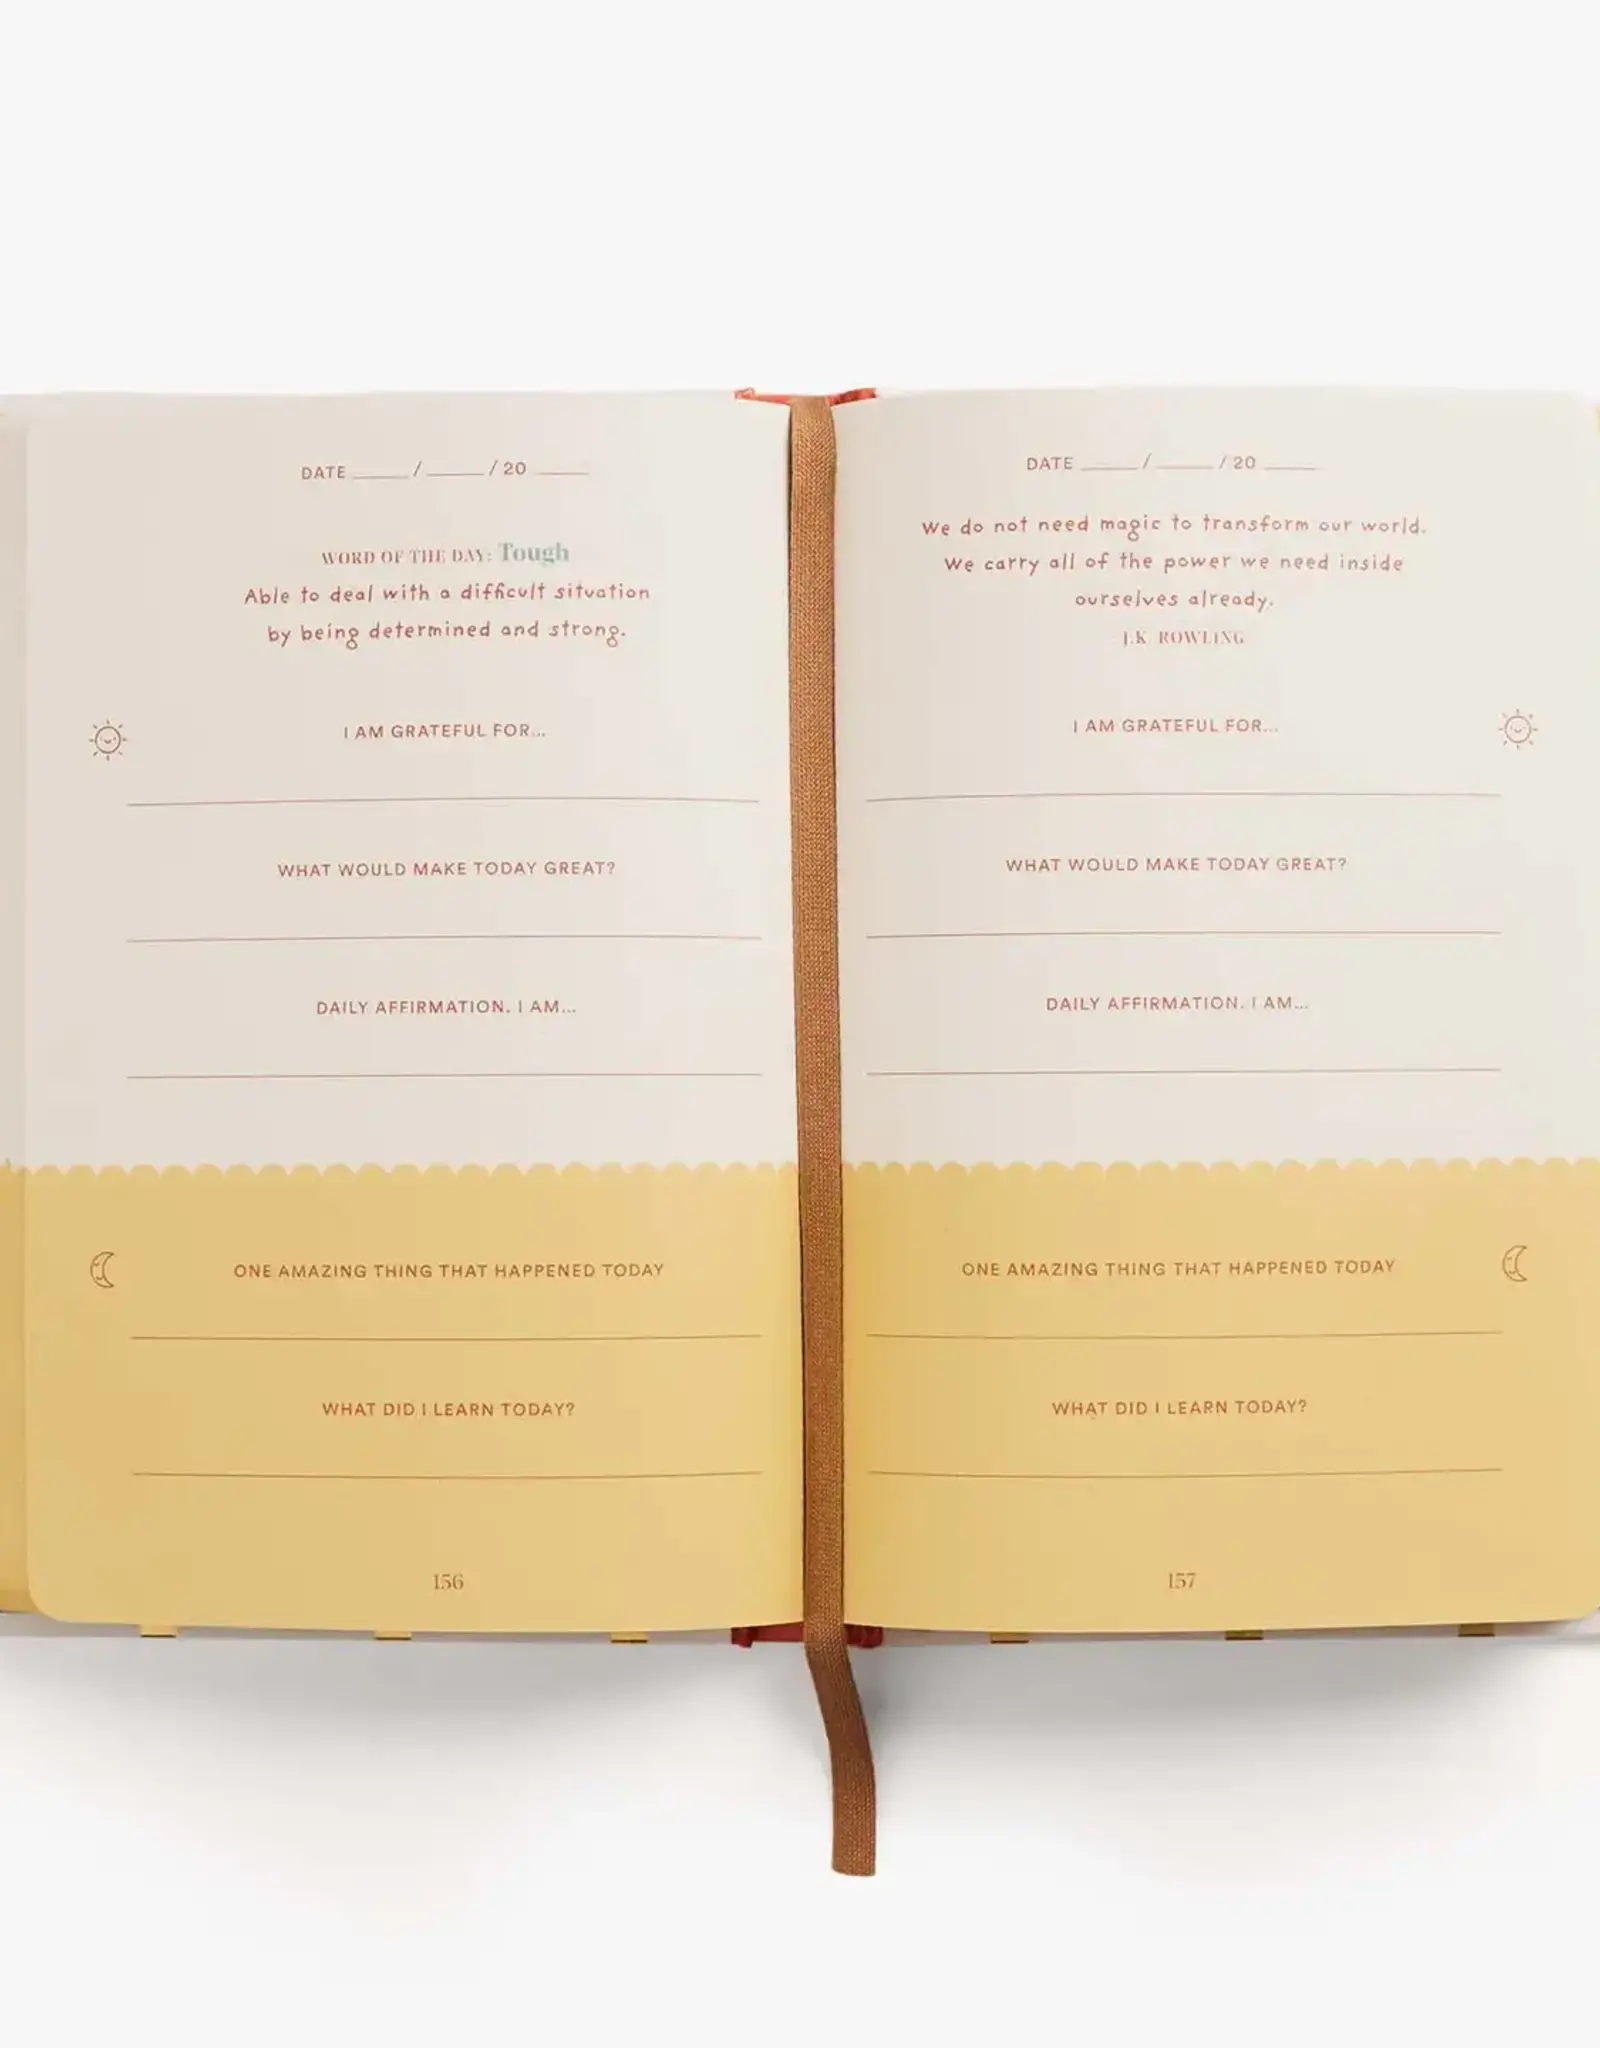 DATE ____ / ____ / 20 ____
WORD OF THE DAY: Tough
Able to deal with a difficult situation
by being determined and strong.
I AM GRATEFUL FOR...
WHAT WOULD MAKE TODAY GREAT?
DAILY AFFIRMATION. I AM...
ONE AMAZING THING THAT HAPPENED TODAY
WHAT DID I LEARN TODAY?
156
DATE ____ / ____ / 20 ____
We do not need magic to transform our world.
We carry all of the power we need inside
ourselves already.
J.K. ROWLING
I AM GRATEFUL FOR...
WHAT WOULD MAKE TODAY GREAT?
DAILY AFFIRMATION. I AM...
ONE AMAZING THING THAT HAPPENED TODAY
WHAT DID I LEARN TODAY?
157